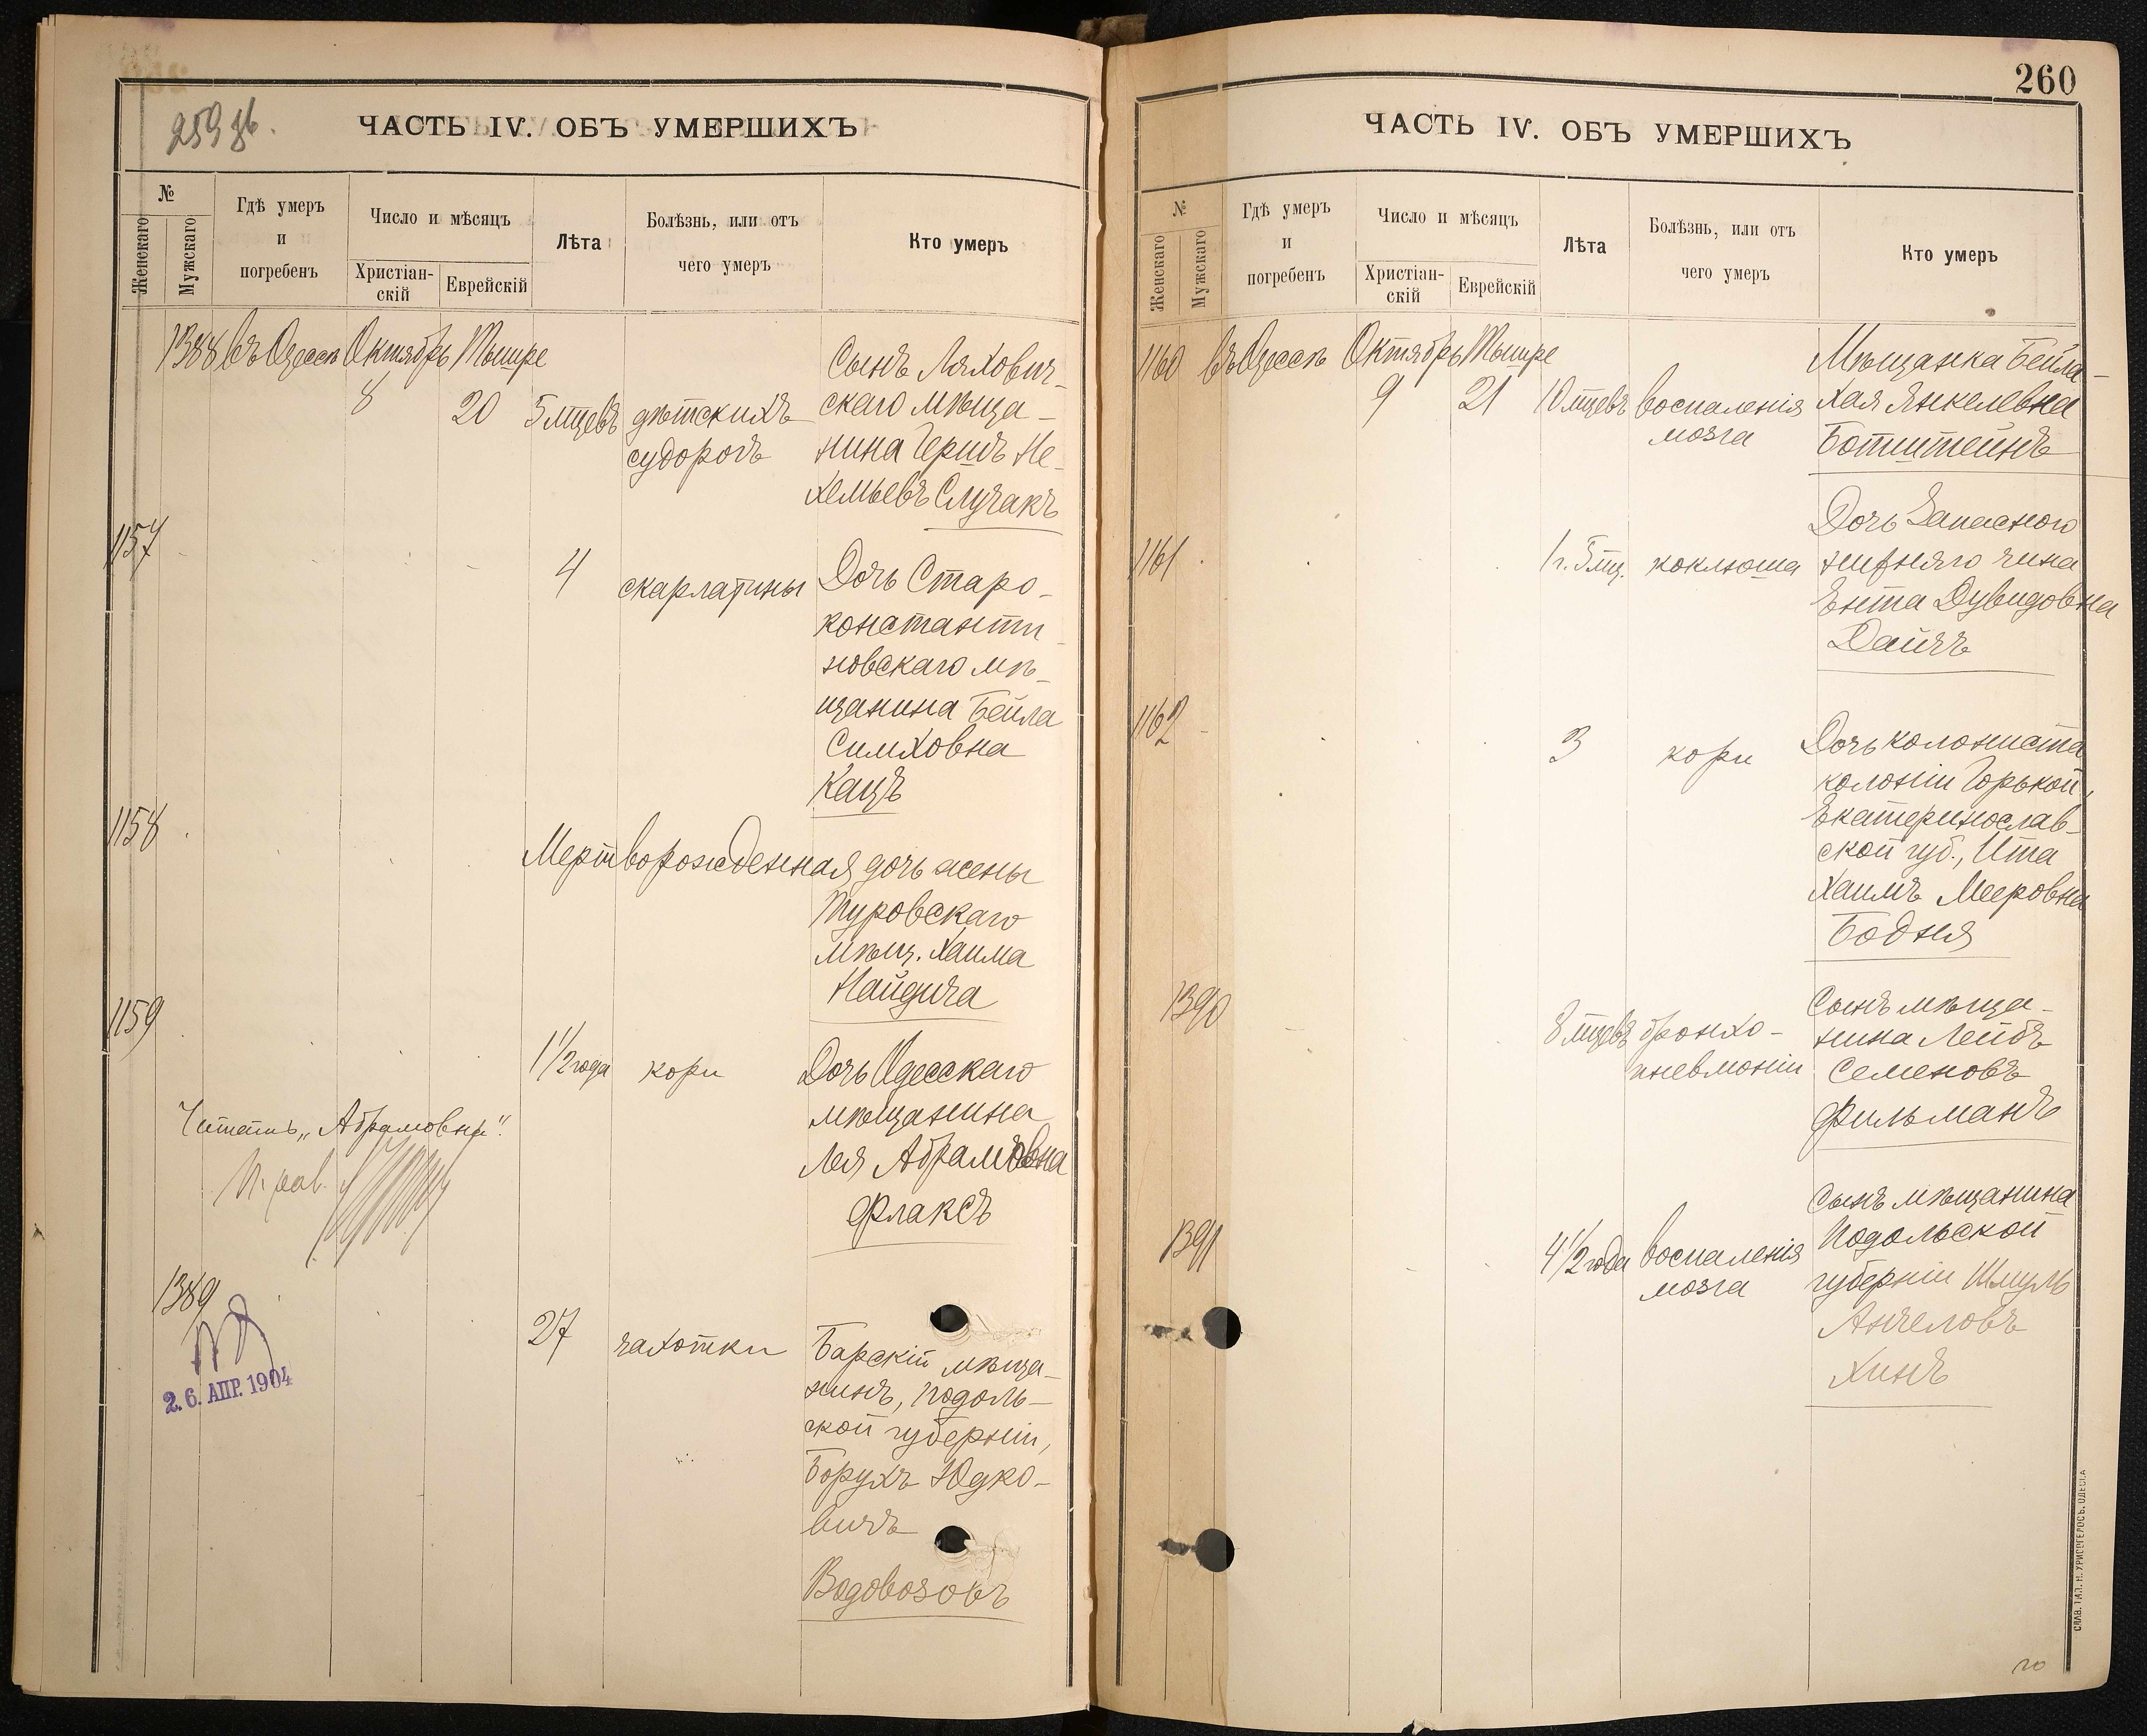 259 об.
ЧАСТЬ IV. ОБЪ УМЕРШИХЪ
№
Женскаго
Мужскаго
Гдѣ умеръ
и
погребенъ
Число и мѣсяцъ
Христіан-
скій
Еврейскій
Лѣта
Болѣзнь, или отъ
чего умеръ
Кто умеръ
1388 въ Одессѣ Октябрь Тышре
8 20 5 мцевъ дѣтскихъ
судорогъ
Сынъ Ляхович-
скаго мѣща-
нина Гершъ Не-
хемьевъ Случакъ
1157
4 скарлатины
Дочь Старо-
константи-
новскаго мѣ-
щанина Бейла
Симховна
Кацъ
1158
Мертворожденная дочь жены
Туровскаго
мѣщ. Хаима
Найдича
1159
1 1/2 года кори
Дочь Одесскаго
мѣщанина
Лея Абрамовна
Флаксъ
Читать „Абрамовна".
1389
27 чахотки
Барскій мѣща-
нинъ, Подоль-
ской губерніи,
Борухъ Юдко-
вичъ
Водовозовъ
2.6. АПР. 1904
260
ЧАСТЬ IV. ОБЪ УМЕРШИХЪ
№
Женскаго
Мужскаго
Гдѣ умеръ
и
погребенъ
Число и мѣсяцъ
Христіан-
скій
Еврейскій
Лѣта
Болѣзнь, или отъ
чего умеръ
Кто умеръ
1160 въ Одессѣ Октябрь Тышре
9 21 10 мцевъ воспаленія
мозга
Мѣщанка Бейла-
Хая Янкелевна
Ботштейнъ
1161
1 г. 5 мц. коклюша
Дочь Запасного
нижняго чина
Ента Дувидовна
Дайчъ
1162
3 кори
Дочь колониста
колоніи Горькой,
Екатеринослав-
ской губ., Ита
Хаимъ Мееровна
Бодня
1390
8 мцевъ бронхо-
пневмоніи
Сынъ мѣща-
нина Лейбъ
Семеновъ
Фильманъ
1391
4 1/2 года воспаленія
мозга
Сынъ мѣщанина
Подольской
губерніи Шмуль
Анчеловъ
Хинъ